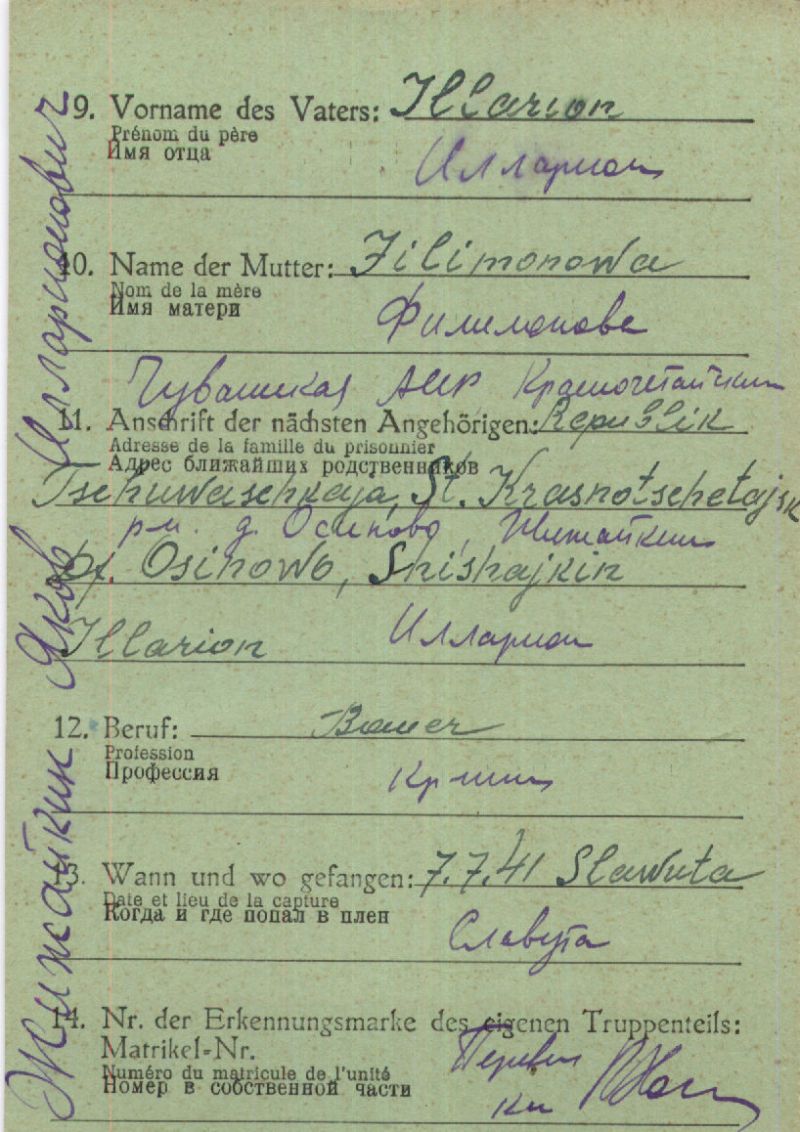 9. Vorname des Vaters: Illarion
Prénom du père
Имя отца
Илларион
10. Name der Mutter: Filimonowa
Nom de la mère
Имя матери
Филимонова
Чувашская АССР Красночетайский
11. Anschrift der nächsten Angehörigen: Republik
Adresse de la famille du prisonnier
Адрес ближайших родственников
Tschuwaschkaja, St. Krasnotschetajsk
д. Осиново,
Df. Osinowo, Shishajkin
Illarion Илларион
12. Beruf: Bauer
Profession
Профессия
13. Wann und wo gefangen: 7.7.41 Slawuta
Date et lieu de la capture
Когда и где попал в плен
Славута
14. Nr. der Erkennungsmarke des eigenen Truppenteils:
Matrikel-Nr.
Numéro du matricule de l'unité
Номер в собственной части
Жижайкин Яков Илларионович